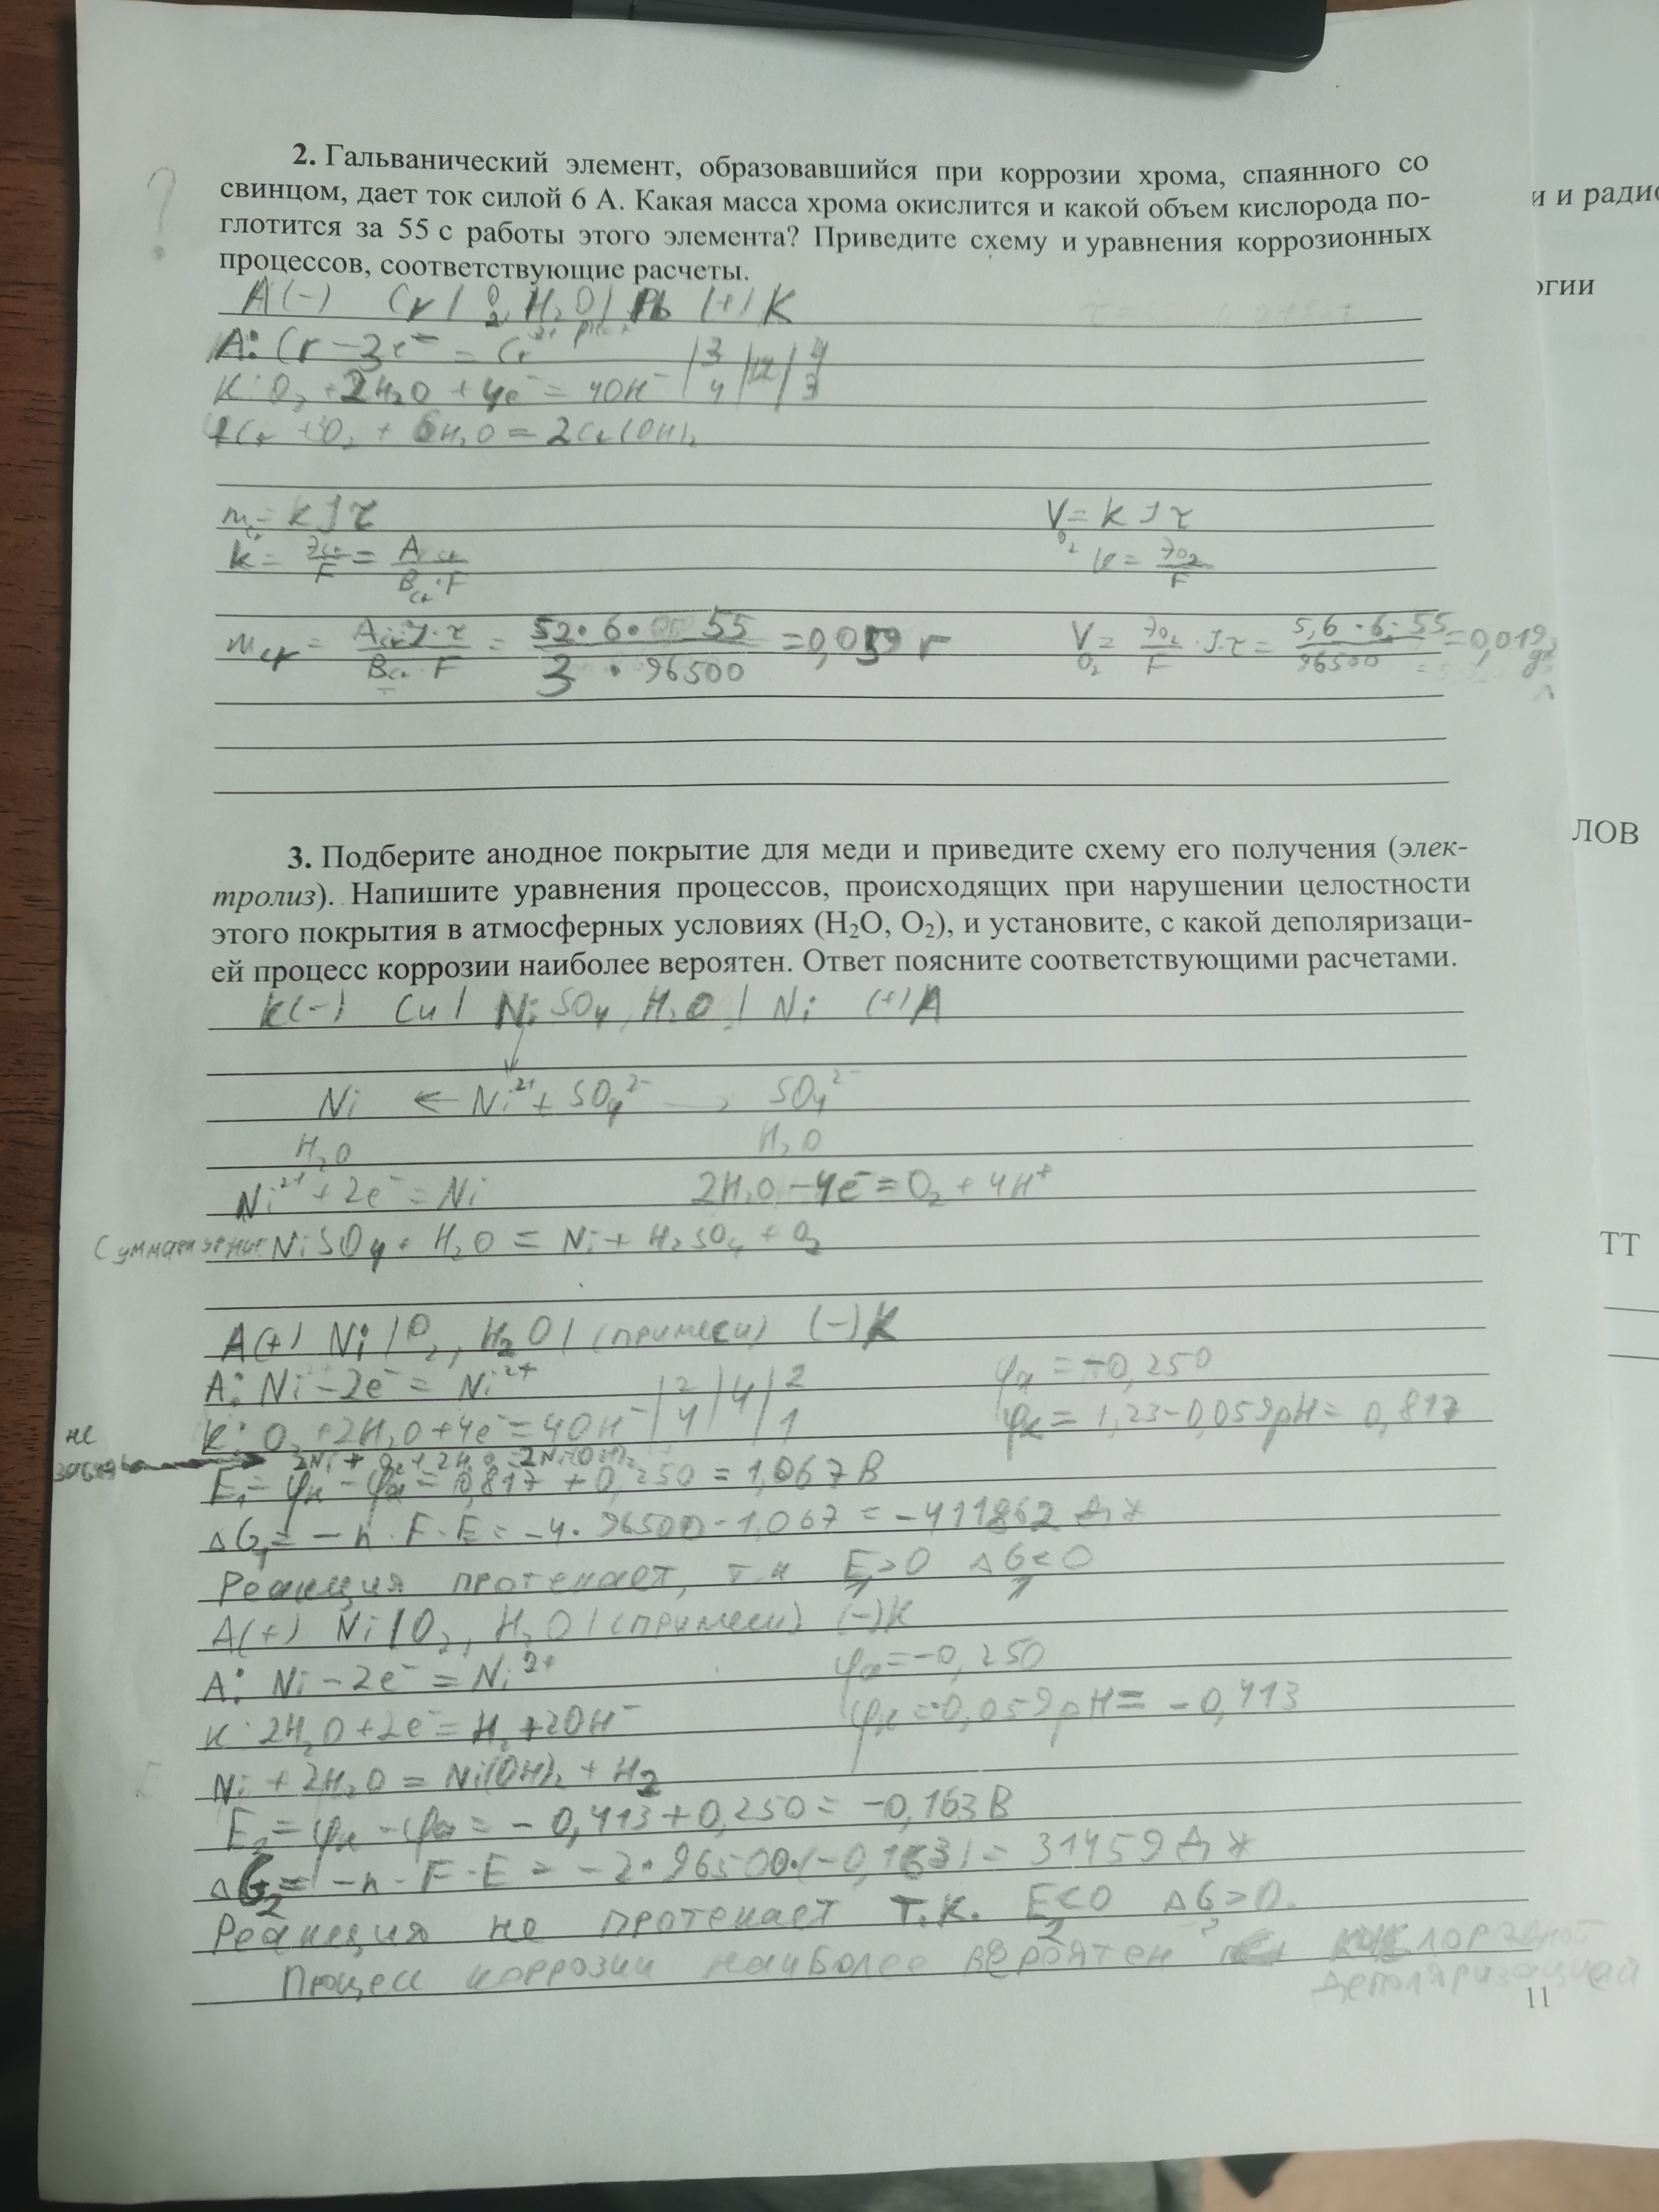 2. Гальванический элемент, образовавшийся при коррозии хрома, спаянного со
свинцом, дает ток силой 6 А. Какая масса хрома окислится и какой объем кислорода по-
глотится за 55 с работы этого элемента? Приведите схему и уравнения коррозионных
процессов, соответствующие расчеты.
?
A(-) Cr | O₂, H₂O | Pb (+) K
A: Cr - 3e⁻ = Cr³⁺ | 3 | 12 | 4
K: O₂ + 2H₂O + 4e⁻ = 4OH⁻ | 4 | 3
+ 6H₂O =
m = k J τ
V = k J τ
O₂
k = Э_Cr/F = A_Cr/(B_Cr · F)
k = Э_O₂/F
m_Cr = (A_Cr · J · τ)/(B_Cr · F) = (52 · 6 · 55)/(3 · 96500) = 0,059 г
V_O₂ = Э_O₂/F · J · τ = (5,6 · 6 · 55)/96500 = 0,019
3. Подберите анодное покрытие для меди и приведите схему его получения (элек-
тролиз). Напишите уравнения процессов, происходящих при нарушении целостности
этого покрытия в атмосферных условиях (H₂O, O₂), и установите, с какой деполяризаци-
ей процесс коррозии наиболее вероятен. Ответ поясните соответствующими расчетами.
K(-) Cu | NiSO₄, H₂O | Ni (+) A
Ni ← Ni²⁺ + SO₄²⁻ → SO₄²⁻
H₂O H₂O
Ni²⁺ + 2e⁻ = Ni 2H₂O - 4e⁻ = O₂ + 4H⁺
NiSO₄ + H₂O = Ni + H₂SO₄ + O₂
A(+) Ni | O₂, H₂O | (примеси) (-) K
A: Ni - 2e⁻ = Ni²⁺ | 2 | 4 | 2
φa = -0,250
K: O₂ + 2H₂O + 4e⁻ = 4OH⁻ | 4 | 1
φк = 1,23 - 0,059pH = 0,817
не
2Ni + O₂ + 2H₂O = 2Ni(OH)₂
E₁ = φк - φa = 0,817 + 0,250 = 1,067 В
ΔG₁ = -n · F · E = -4 · 96500 · 1,067 = -411862 Дж
Реакция протекает, т.к E₁>0 ΔG₁<0
A(+) Ni | O₂, H₂O | (примеси) (-) K
A: Ni - 2e⁻ = Ni²⁺
φa = -0,250
K: 2H₂O + 2e⁻ = H₂ + 2OH⁻
φк = -0,059pH = -0,413
Ni + 2H₂O = Ni(OH)₂ + H₂
E₂ = φк - φa = -0,413 + 0,250 = -0,163 В
ΔG₂ = -n · F · E = -2 · 96500 · (-0,163) = 31459 Дж
Реакция не протекает т.к. E₂<0 ΔG₂>0.
Процесс коррозии наиболее вероятен с кислородной
деполяризацией
11
и и радио
огии
ЛОВ
ТТ